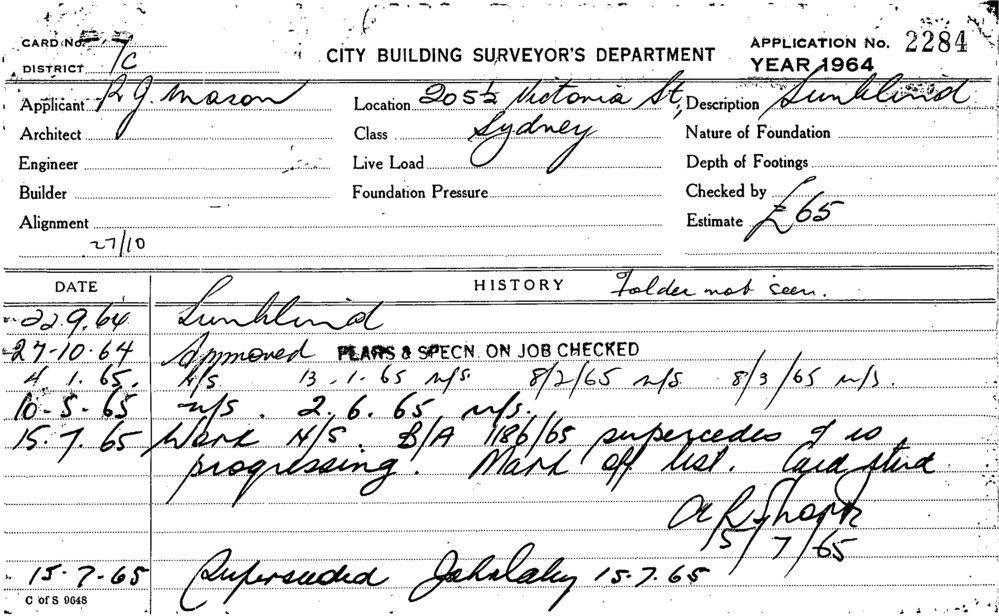 CARD No.
DISTRICT 7C
CITY BUILDING SURVEYOR'S DEPARTMENT
APPLICATION No. 2284
YEAR 1964
Applicant R J. Mason
Location 205½ Victoria St,
Description Sunblind
Architect
Class Sydney
Nature of Foundation
Engineer
Live Load
Depth of Footings
Builder
Foundation Pressure
Checked by
Alignment
Estimate £65
27/10
DATE HISTORY Folder not seen.
22.9.64 Sunblind
27-10-64 Approved PLANS & SPECN. ON JOB CHECKED
4 1. 65. N/S 13.1.65 N/S. 8/2/65 N/S. 8/3/65 N/S.
10-5-65 N/S. 2.6.65 N/S.
15.7.65 Work N/S. B/A 1186/65 supercedes & is
progressing. Mark off list. Card
15/7/65
15.7-65 Superseeded 15.7.65
C of S 9648